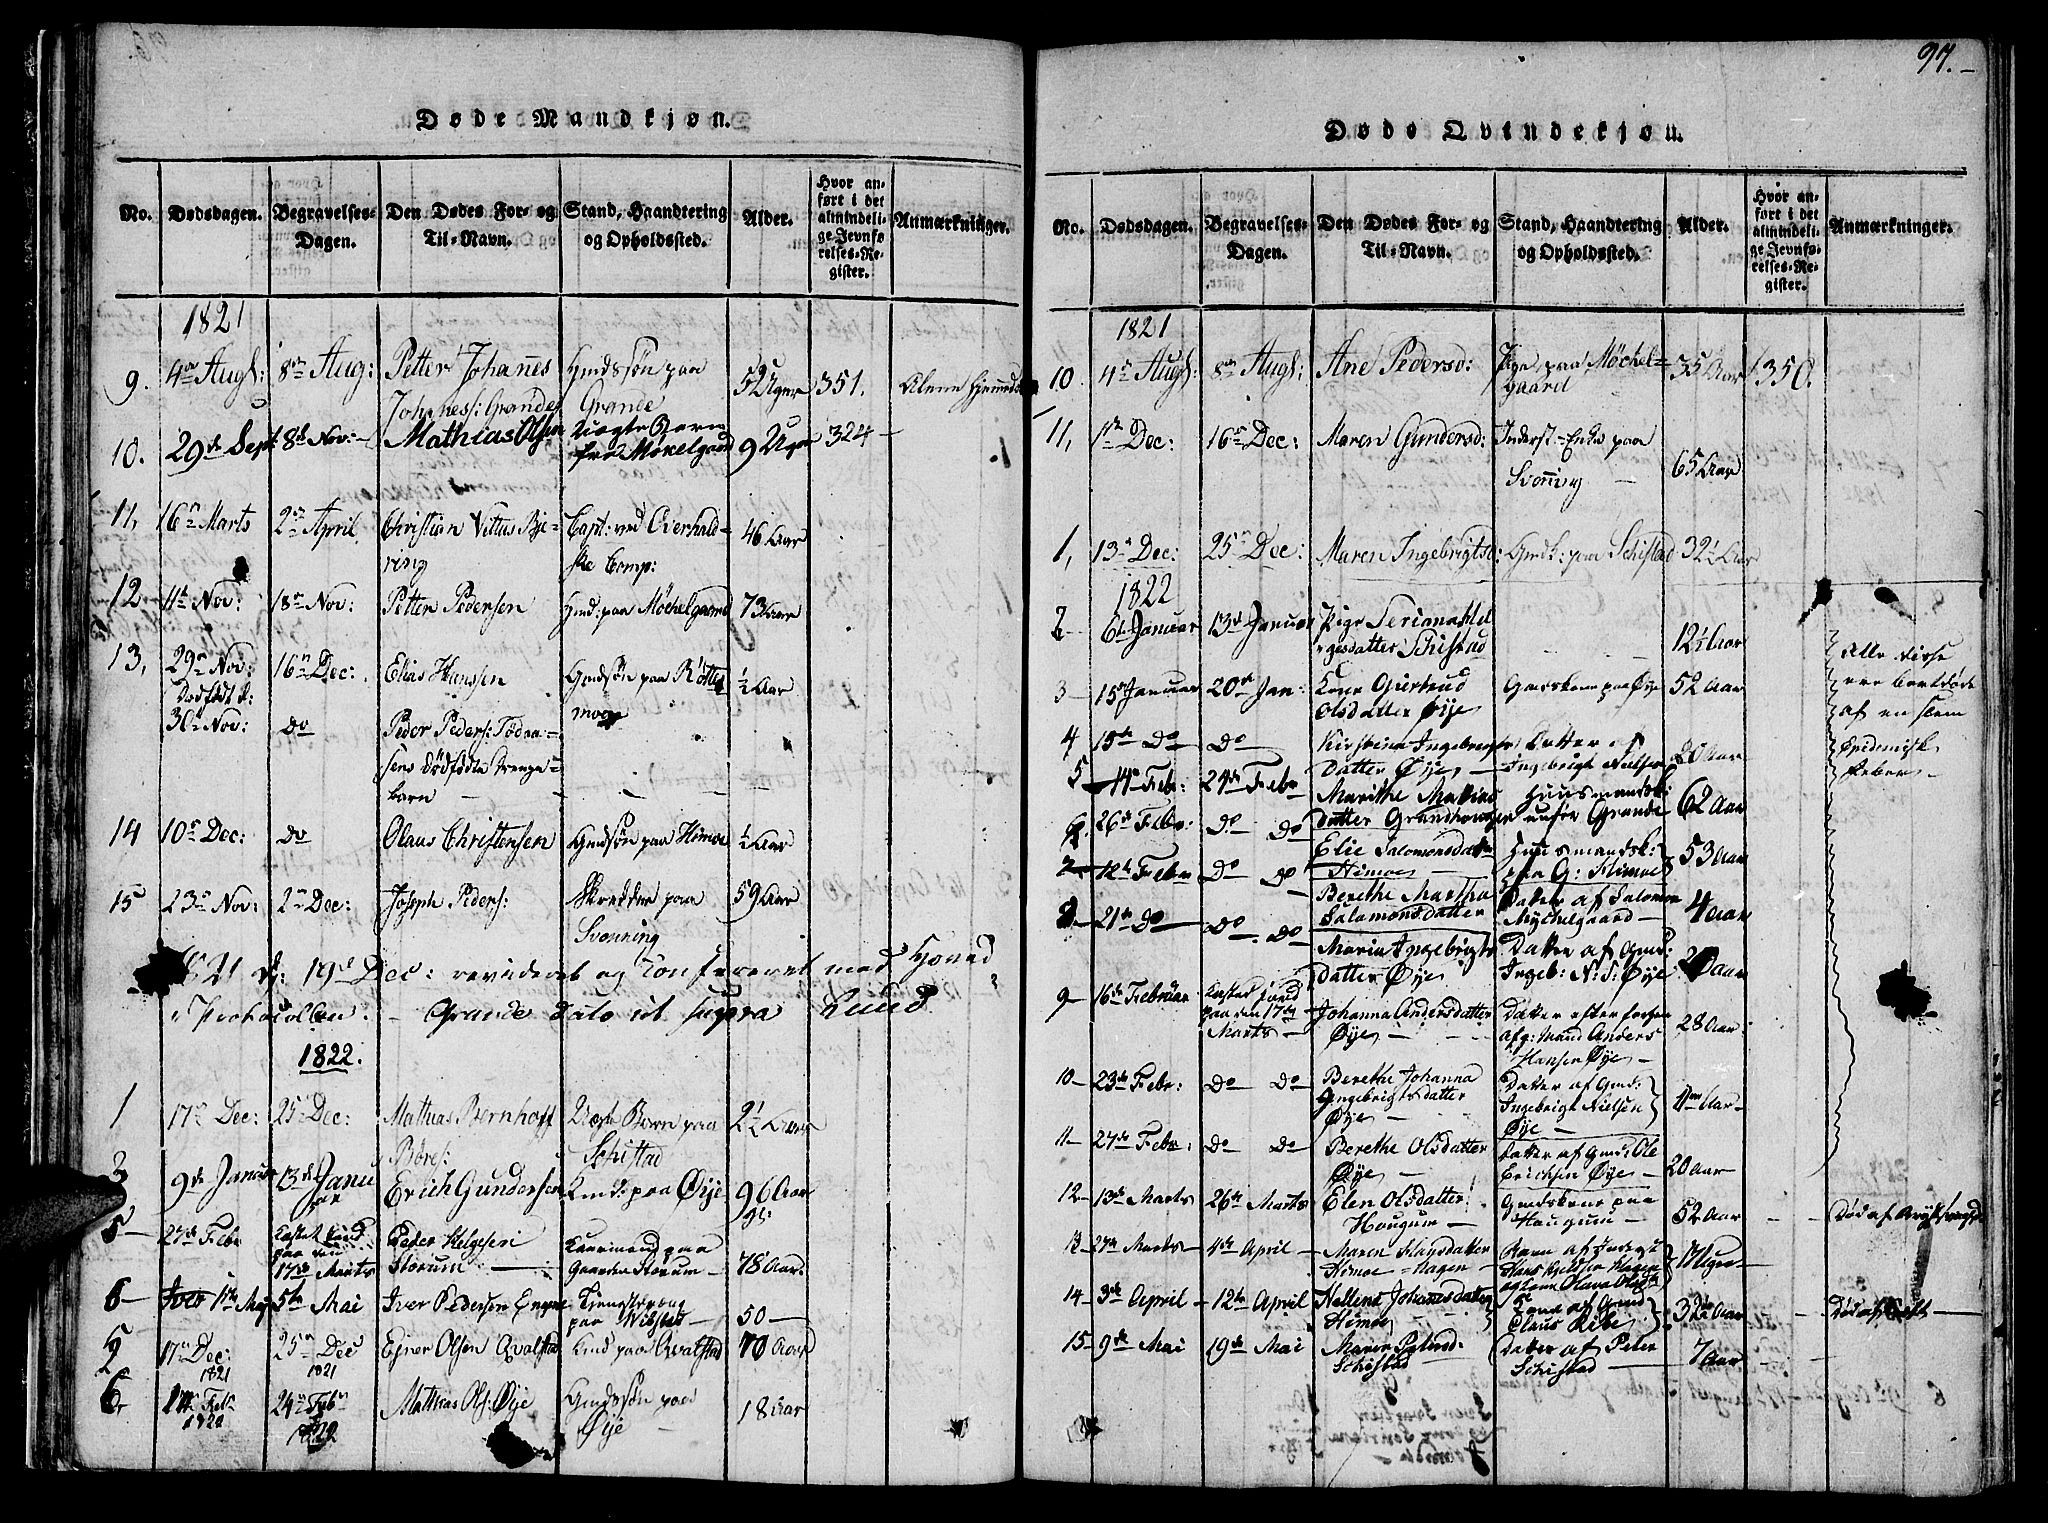 97.
Døde Mandkjøn.
No. Dødsdagen. Begravelses-Dagen. Den Dødes For- og Til-Navn. Stand, Haandtering og Opholdssted. Alder. Hvor anført i det almindelige Jevnførelses-Register. Anmærkninger.
1821
9. 4de Augs: 8de Aug: Petter Johannes Johaness: Grande Gmdssøn paa Grande 5 Uger 351.
10. 29de Sept 8de Nov: Mathias Olsen fra Møkelgaard 9 Uger 324
11, 16n Marts 2n April Christian Vittus Bjering Capt: ved Overhaldske Comp: 46 Aar
12 11te Nov: 18n Nov: Petter Pedersen Gmd: paa Møchelgaard 73 Aar
13, 29n Nov: 16n Dec: Elias Hanssen Gmdssøn paa Røttesmoe ½ Aar
Dødfødt d: 30n Nov: do Peder Peders: Tødaasens dødfødte Drengebarn
14 10n Dec: do Olaus Christensen Gmdssøn paa Himoe ½ Aar
15 23n Nov: 2n Dec: Joseph Peders: Skredder paa Svenning 59 Aar
1821 d: 19de Dec: revideret og Conferveret med Hoved
Protocollen. Grande dato ut supra Lund
1822.
1 17n Dec: 25n Dec: Mathias Bernhoff Børes: Uægte Barn paa Schistad 2½ Aar
2 9de Januar 13de Januar Erich Gundersen Gmd: paa Øye 96 Aar gl:
5 27de Febr Kastet Jord paa den 17de Marts Peder Helgesen Storum Kaarmand paa Gaarden Storum 78 Aar
6 1te Maj 5te Mai Iver Pedersen 50
5 17n Dec: 1821 25n Dec 1821 Ejner Olsen Qvalstad Gmd paa Qvatstad 70 Aar
6 Feb: 24n Feb: 1822 Mathias Ols: Øye Gmdssøn paa Øye 18 Aar
Døde Qvindekjøn.
No. Dødsdagen. Begravelses-Dagen. Den Dødes For- og Til-Navn. Stand, Haandtering og Opholdssted. Alder. Hvor anført i det almindelige Jevnførelses-Register. Anmærkninger.
1821
10 4n Augs: 8de Augs: Ane Pedersd: Pige paa Møchelgaard 35 Aar 350.
11, 1te Dec: 16n Dec: Maren Gundersd: Inderst-Enke paa Svenning 65 Aar
1, 13n Dec: 25n Dec: Maren Ingebrigtsd: Gmdk: paa Schistad 32½ Aar
1822
2 6te Januar 13de Januar Pige Seriana Helgesdatter Schistad 12½ Aar
3 15 Januar 20de Jan: Kone Giertrud Olsdatter Øye Gaardskone paa Øye 52 Aar
4 15de Do Do Kirstina Ingebrigtsdatter Øye Datter af Ingebrigt Nielsen 20 Aar
5 14n Febr: 24de Febr Marithe Mathiasdatter Grandhougen Huusmandsk: under Grande 62 Aar
6 26de Febr: Do Do Elie Salomonsdatter Himoe Huusmandsk: paa G: Himoe 53 Aar
7 12te Febr Do Do Berethe Martha Salomonsdatter Datter af Salomon Mychelgaard 4 Aar
8 21de Do Do Do Maria Ingebrigtsdatter Øye Datter af Gmd: Ingeb: N: S: Øye Aar
9 16de Februar Kastet Jord paa den 17de Marts Johanna Andersdatter Øye Datter efter forhen afg: Mand Anders Hansen Øye 28 Aar
10 23de Febr: Do Do Berethe Johanna Ingebrigtsdatter Øye Datter af Gmd: Ingebrigt Nielsen Øye Aar
11 27de Febr Do Do Berethe Olsdatter Øye Datter af Gmd: Ole Erichsen Øye 20 Aar
12 13de Marts 26de Marts Elen Olsdatter Hougum Gmdskone paa Hougum 52 Aar Død af
13 27de Marts 4de April Maren Himoe-Hagen Barn af
14 3de April 12te April Hellena Johanesdatter Himoe Kone af Gmd Claus Ribe 32½ Aar Død af
15 9de Mai 19de Mai Maren Petersd: Schistad Datter af Peter Schistad 7 Aar
Alle disse
ere bortdøde
af en slem
Epidemisk
Feber